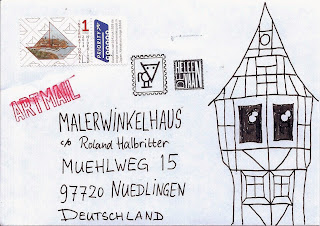 1
PRIORITY
ARTMAIL
MALERWINKELHAUS
c/o Roland Halbritter
MUEHLWEG 15
97720 NUEDLINGEN
DEUTSCHLAND